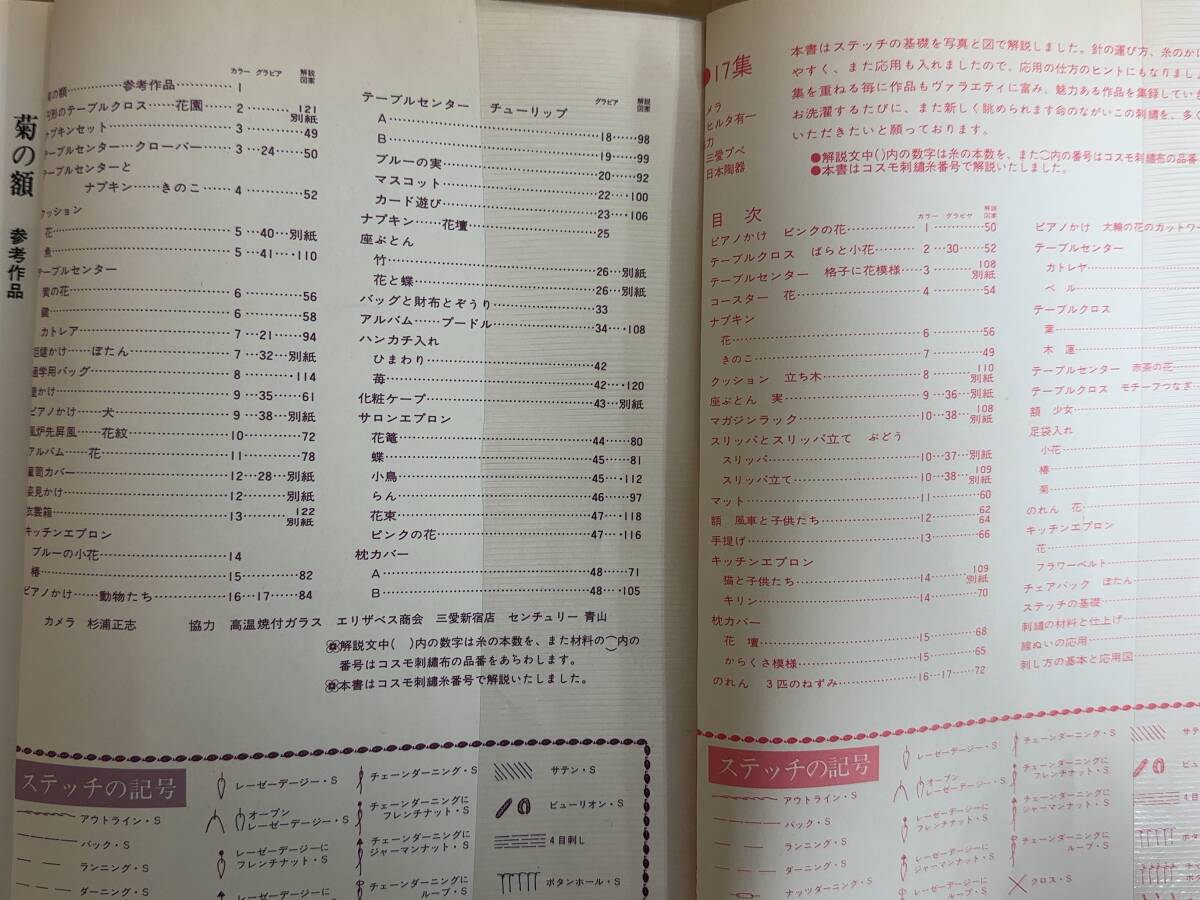 菊の額 参考作品
カラー グラビア 解説図案
の額…………参考作品………… 1
のテーブルクロス……花園…… 2………121 別紙
ナプキンセット………………… 3………49
テーブルセンター…クローバー… 3…24……50
テーブルセンターと
ナプキン……きのこ… 4………52
クッション
花………………… 5…40…別紙
魚………………… 5…41…・110
テーブルセンター
の花………………… 6………56
………………… 6………58
カトレア………………… 7…21……94
かけ……ぼたん……… 7…32…別紙
通学用バッグ………………… 8………114
かけ………………… 9…35……61
ピアノかけ……犬………… 9…38…別紙
風炉先屏風……花紋………10………72
アルバム……花…………11………78
箪笥カバー………………12…28…別紙
姿見かけ…………………12………別紙
衣裳箱…………………13………122 別紙
キッチンエプロン
ブルーの小花………………14
椿…………………15………82
ピアノかけ……動物たち………16…17……84
テーブルセンター チューリップ グラビア 解説図案
A…………………18……98
B…………………19……99
ブルーの実…………………20……92
マスコット…………………22……100
カード遊び…………………23……106
ナプキン……花壇…………25
座ぶとん
竹…………………26…別紙
花と蝶…………………26…別紙
バッグと財布とぞうり………33
アルバム……プードル………34…・108
ハンカチ入れ
ひまわり…………………42
苺…………………42…・120
化粧ケープ…………………43…別紙
サロンエプロン
花篭…………………44……80
蝶…………………45……81
小鳥…………………45…・112
らん…………………46……97
花束…………………47…・118
ピンクの花…………………47…・116
枕カバー
A…………………48……71
B…………………48…・105
カメラ 杉浦正志 協力 高温焼付ガラス エリザベス商会 三愛新宿店 センチュリー青山
解説文中( )内の数字は糸の本数を、また材料の⌒内の
番号はコスモ刺繡布の品番をあらわします。
本書はコスモ刺繡糸番号で解説いたしました。
ステッチの記号
アウトライン・S
バック・S
ランニング・S
ダーニング・S
レーゼーデージー・S
オープン
レーゼーデージー・S
レーゼーデージーに
フレンチナット・S
レーゼーデージーに
チェーンダーニング・S
チェーンダーニングに
フレンチナット・S
チェーンダーニングに
ジャーマンナット・S
チェーンダーニングに
ループ・S
サテン・S
ビューリオン・S
4目刺し
ボタンホール・S
●17集
本書はステッチの基礎を写真と図で解説しました。針の運び方、糸のか
やすく、また応用も入れましたので、応用の仕方のヒントにもなりまし
集を重ねる毎に作品もヴァラエティに富み、魅力ある作品を集録してい
お洗濯するたびに、また新しく眺められます命のながいこの刺繡を、多く
いただきたいと願っております。
メラ
ヒルタ有一
力
三愛プペ
日本陶器
●解説文中()内の数字は糸の本数を、また⌒内の番号はコスモ刺繡布の品番
●本書はコスモ刺繡糸番号で解説いたしました。
目次 カラー グラビヤ 解説図案
ピアノかけ ピンクの花………1………50
テーブルクロス ばらと小花……2…30…52
テーブルセンター 格子に花模様…3………108 別紙
コースター 花…………………4………54
ナプキン
花…………………6………56
きのこ…………………7………49
クッション 立ち木…………8………110 別紙
座ぶとん 実…………………9…36…別紙
マガジンラック………………10…38…108 別紙
スリッパとスリッパ立て ぶどう
スリッパ…………………10…37…別紙
スリッパ立て………………10…38…109 別紙
マット…………………11………60
額 風車と子供たち…………12………62 64
手提げ…………………13………66
キッチンエプロン
猫と子供たち………………14………109 別紙
キリン…………………14………70
枕カバー
花壇…………………15………68
からくさ模様………………15………65
のれん 3匹のねずみ…………16…17……72
ピアノかけ 大輪の花のカットワー
テーブルセンター
カトレヤ
ベル
テーブルクロス
葉
木蓮
テーブルセンター 赤茶の花
テーブルクロス モチーフつなぎ
額 少女
足袋入れ
小花
椿
菊
のれん 花
キッチンエプロン
花
フラワーベルト
チェアバック ぼたん
ステッチの基礎
刺繡の材料と仕上げ
線ぬいの応用
刺し方の基本と応用図
ステッチの記号
アウトライン・S
バック・S
ランニング・S
ダーニング・S
ナッツダーニング・S
レーゼーデージー・S
オープン
レーゼーデージー・S
レーゼーデージーに
フレンチナット・S
レーゼーデージーに
ジャーマンナット・S
レーゼーデージーに
ループ・S
チェーンダーニング・S
チェーンダーニングに
フレンチナット・S
チェーンダーニングに
ジャーマンナット・S
チェーンダーニングに
ループ・S
クロス・S
サテ
ビュー
4目
ボタ